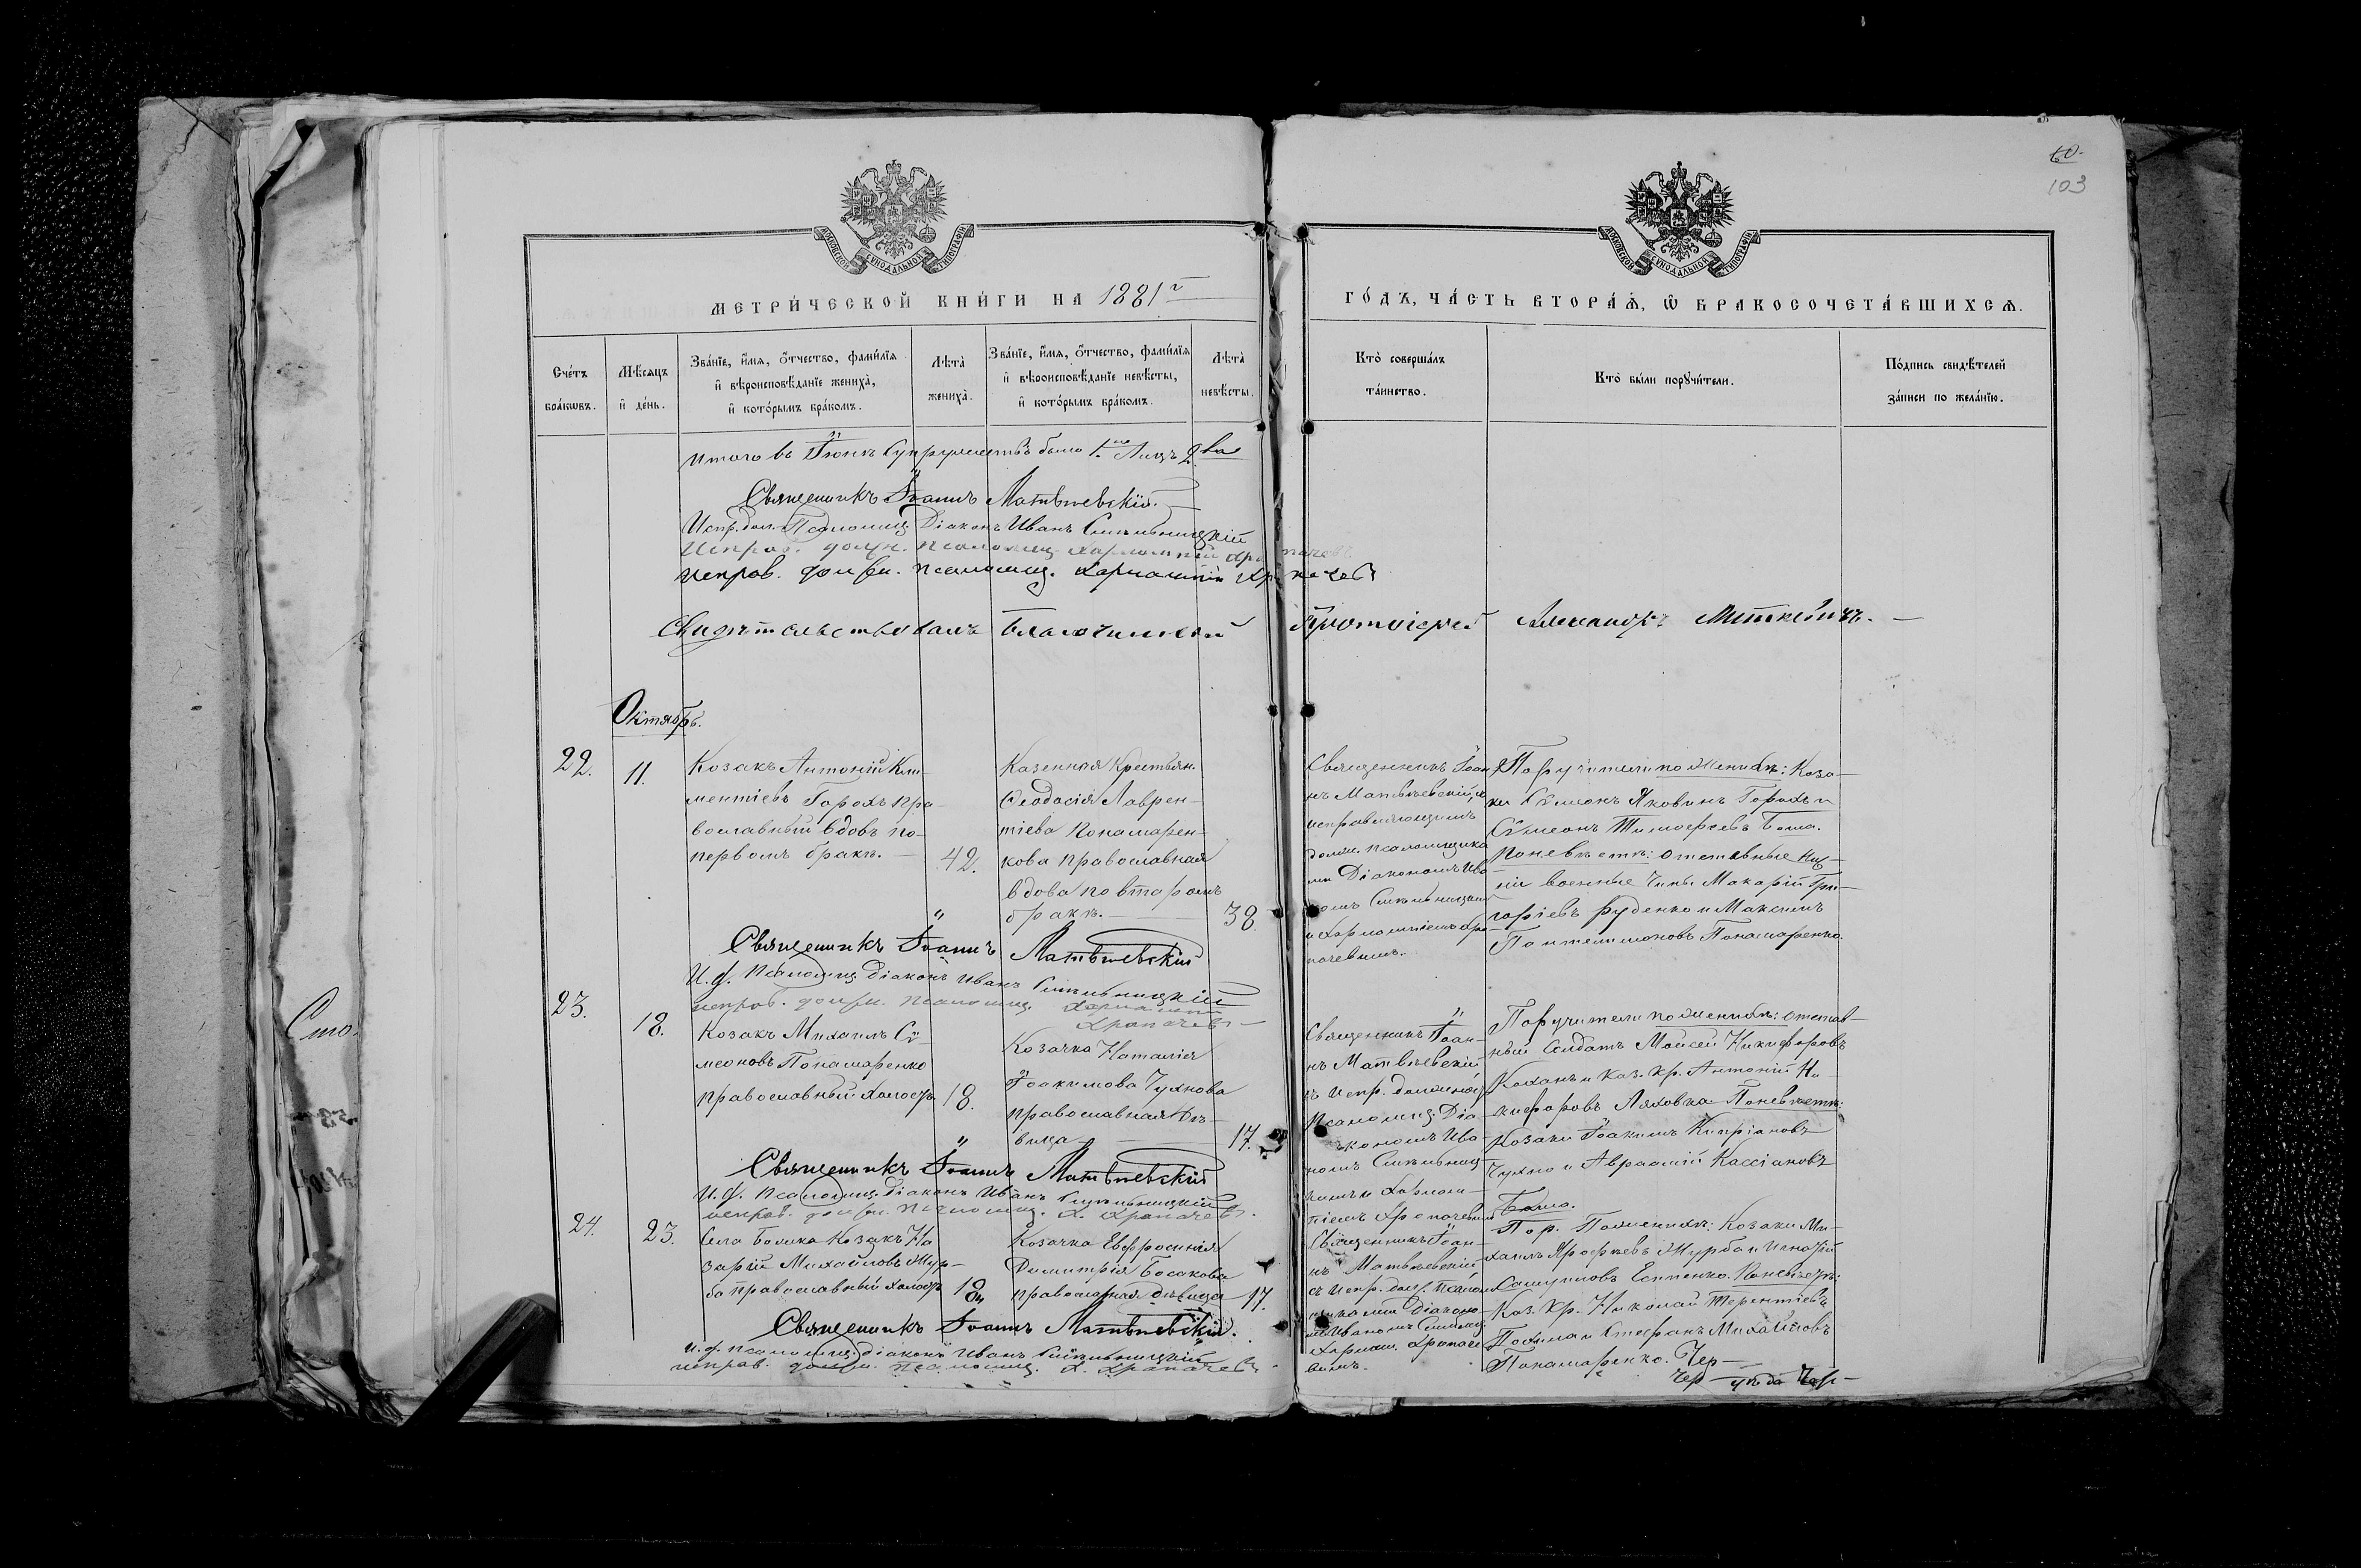 60.
103
МЕТРИ́ЧЕСКОЙ КНИ́ГИ НА 1881 г
ГО́ДЪ, ЧА́СТЬ ВТОРА́Ѧ, Ѿ БРАКОСОЧЕТА́ВШИХСѦ.
МОСКОВСКОЙ СѴНОДАЛЬНОЙ ТИПОГРАФІИ
МОСКОВСКОЙ СѴНОДАЛЬНОЙ ТИПОГРАФІИ
Сче́тъ бра́кѡвъ.
Мѣ́сяцъ и҆ де́нь.
Зва́нїе, и҆́мѧ, ѻ҆́тчество, фами́лїѧ и҆ вѣроисповѣ́данїе жениха̀, и҆ кото́рымъ бра́комъ.
Лѣта̀ жениха̀.
Зва́нїе, и҆́мѧ, ѻ҆́тчество, фами́лїѧ и҆ вѣроисповѣ́данїе невѣ́сты, и҆ кото́рымъ бра́комъ.
Лѣта̀ невѣ́сты.
Кто̀ соверша́лъ та́инство.
Кто̀ бы́ли порꙋчи́тели.
По́дпись свидѣ́телей за́писи по жела́нїю.
Итого въ Іюнѣ Супружествъ было 1 но Лицъ 2 ва
Священникъ Іоаннъ Матвѣевскій.
Испр. дол. Псаломщ. Діаконъ Иванъ
Исправ. должн. псаломщ. Харлампій
исправ. должн. псаломщ. Харлампій
Свидѣтельствовалъ Благочинный Протоіерей Александръ Миткевичъ.
Октябрь.
22.
11.
Козакъ Антоній Кли-
ментіевъ Горохъ пра-
вославный вдовъ по
первомъ бракѣ.
42.
Казенная крестьян.
Ѳеодосія Лаврен-
тіева Понамарен-
кова православная
вдова по второмъ
бракѣ.
38.
Священникъ Іоан
нъ Матвѣевскій, с
исправляющимъ
должн. псаломщика
ми Діакономъ Ива
номъ
и Харлампіемъ Хра
пачевымъ.
Поручители по женихѣ: Коза-
ки Сѵмеонъ Яковинъ Горохъ и
Сѵмеонъ Тимоѳеевъ Бома.
По невѣстѣ: отставные ниж-
ніи военные Чины Макарій Гри-
горіевъ Руденко и Максимъ
Пантелимоновъ Понамаренко.
Священникъ Іоаннъ Матвѣевскій
И. д. псаломщ. діаконъ Иванъ
исправ. должн. псаломщ. Харлампій
Храпачевъ
23.
18.
Козакъ Михаилъ Сѵ-
меоновъ Понамаренко
православный холостъ
18.
Козачка Наталія
Іоакимова Чухнова
православная Дѣ-
вица
17.
Священникъ Іоан-
нъ Матвѣевскій
съ испр. должность
Псаломщ. Діа-
кономъ Ива-
номъ
и Харлам-
піемъ Храпачевым
Поручители по женихѣ: отстав-
ный Солдатъ Моисей Никифоровъ
Коханъ и каз. кр. Антоній Ни-
кифоровъ Ляховка. По невѣстѣ:
козаки Іоакимъ Кипріановъ
Чухно и Авраамій Кассіановъ
Бома.
Священникъ Іоаннъ Матвѣевскій
И. д. псаломщ. діаконъ Иванъ
исправ. должн. псаломщ. Х. Храпачевъ.
24.
23.
Села козакъ На
зарій Михайловъ Жур-
ба православный холостъ
18
Козачка Евфросинія
Димитрія Босакова
православная дѣвица
17.
Священникъ Іоан-
нъ Матвѣевскій
съ испр. дол. псалом
щиками Діаконо
мъ Иваномъ
Харламп. Храпаче
вымъ.
Пор. По женихѣ: козаки Ми-
хаилъ Ярофеевъ Журба и Игнатій
Самуиловъ Еспенко. По невѣстѣ:
Каз. кр. Николай Терентіевъ
и Стефанъ Михайловъ
Понамаренко. Чер
Священникъ Іоаннъ Матвѣевскій.
И. д. псаломщ. діаконъ Иванъ
исправ. должн. псаломщ. Х. Храпачевъ